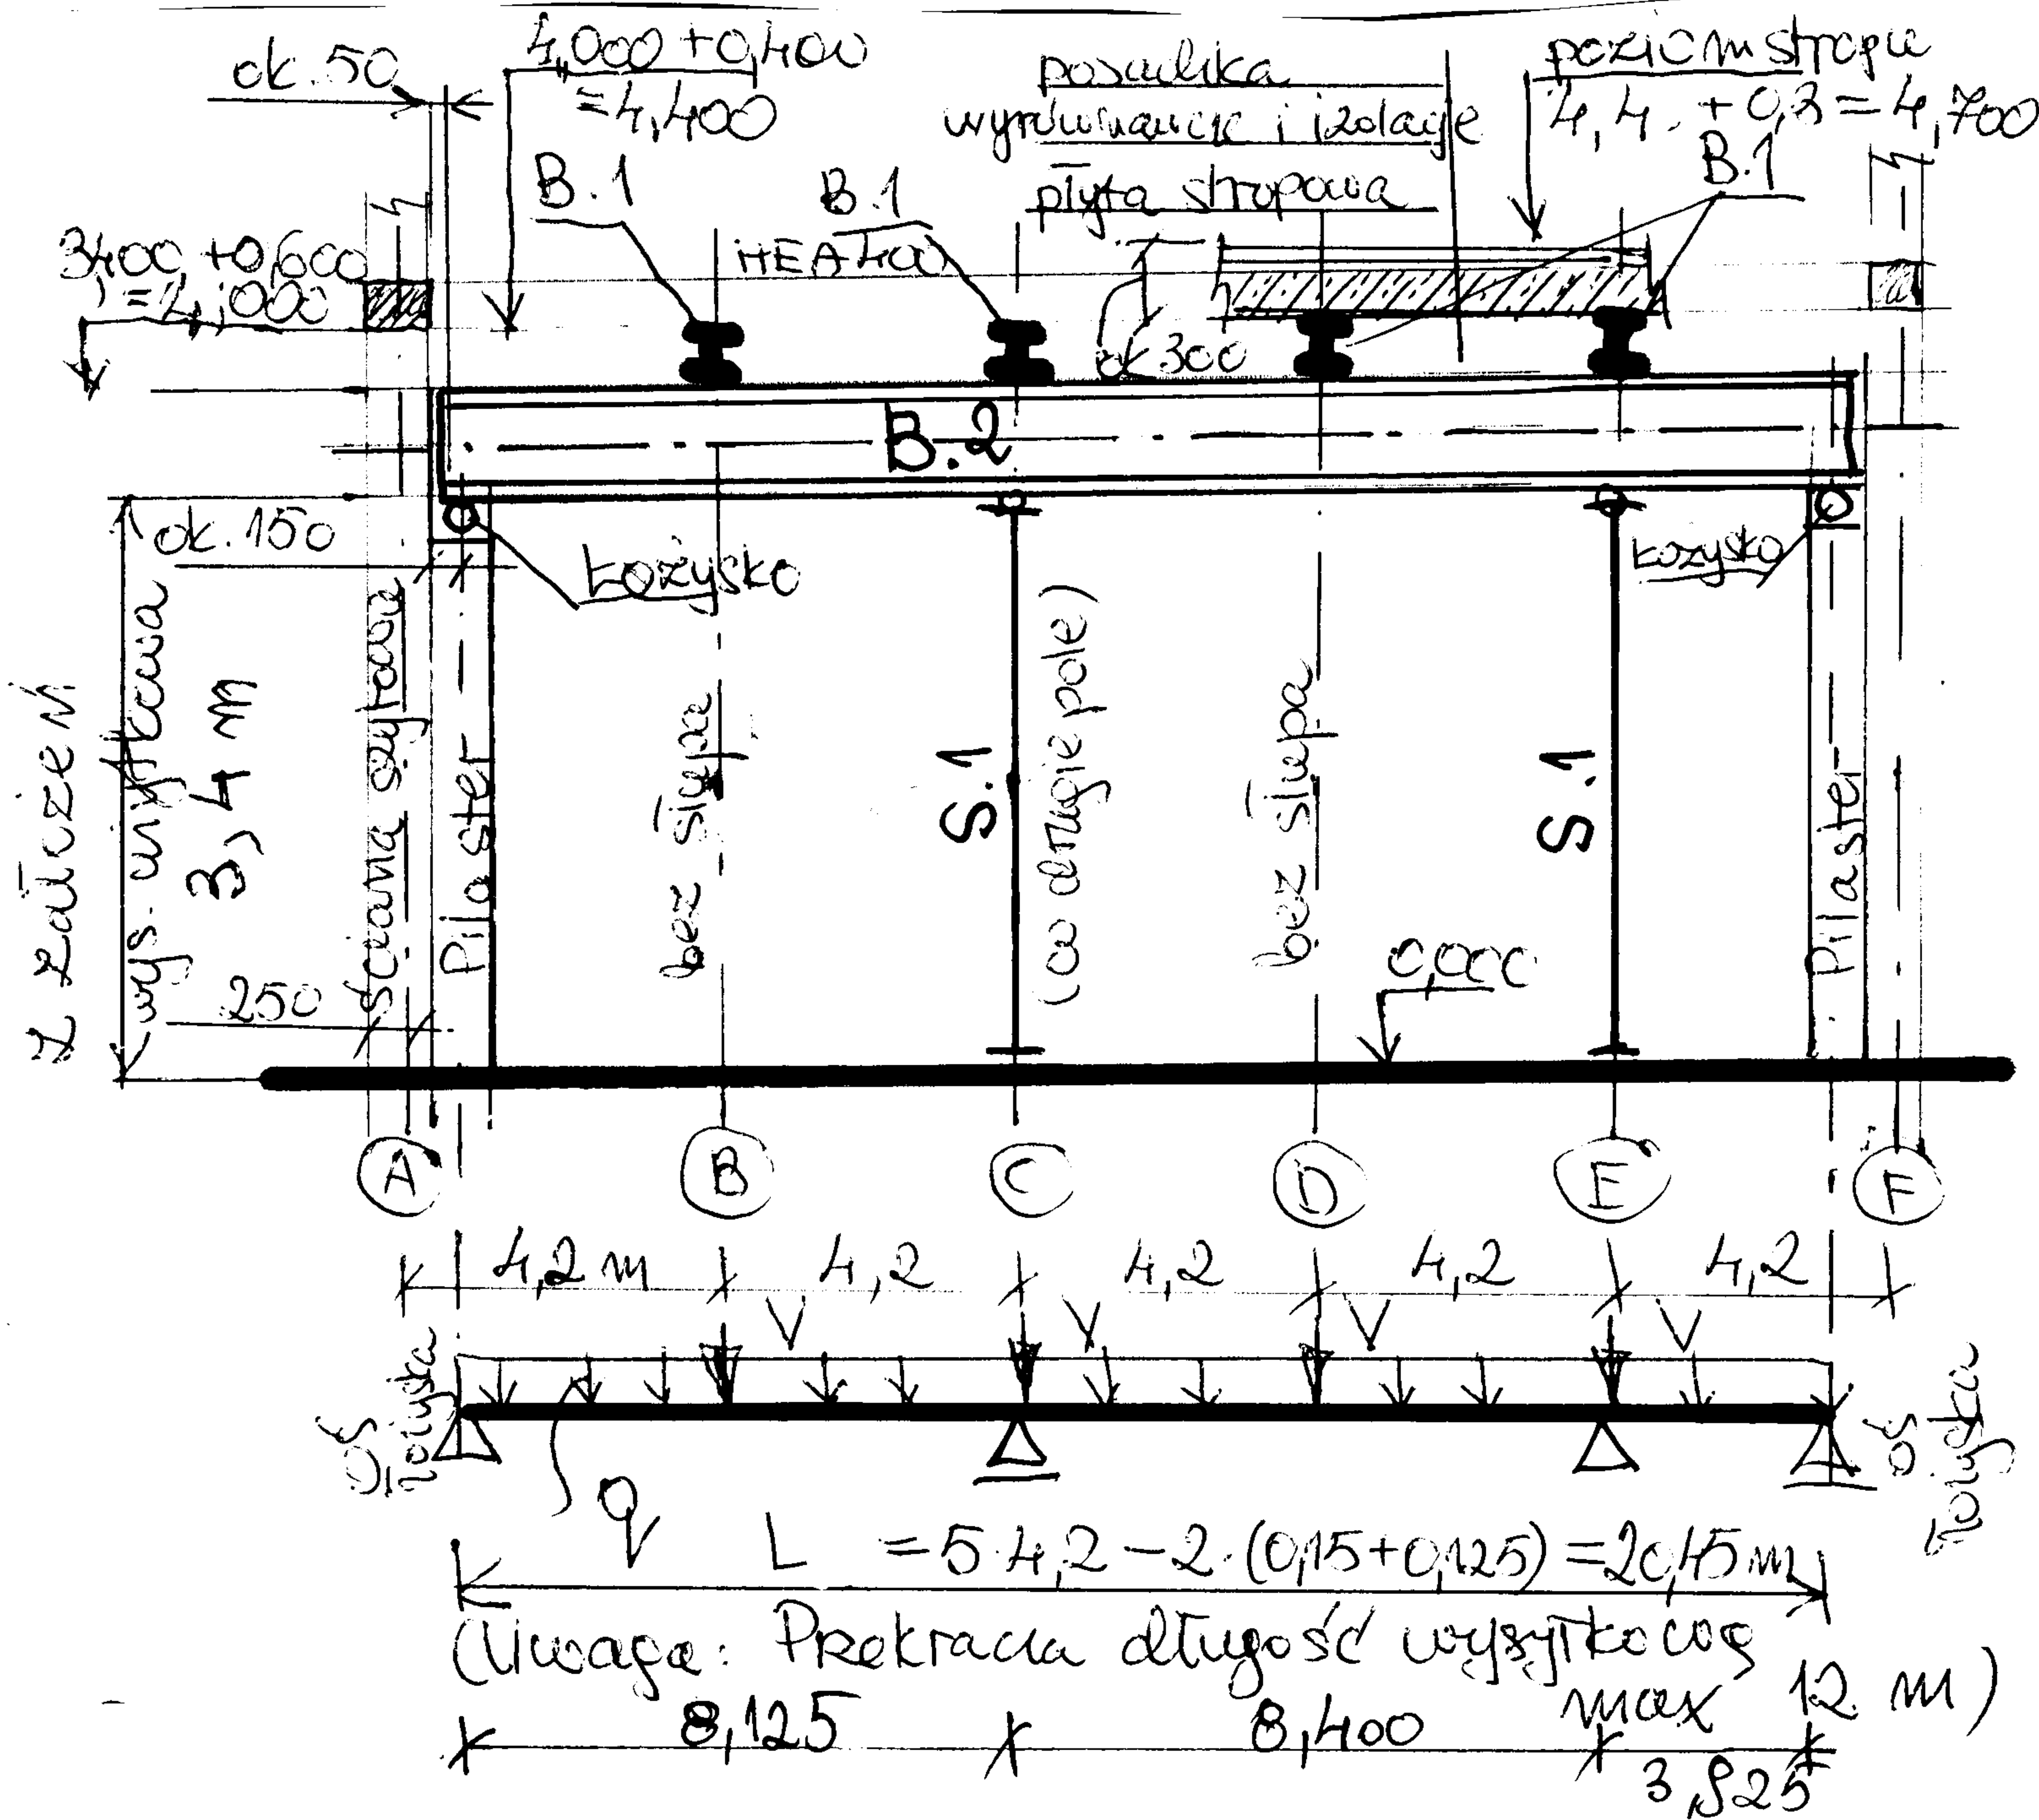 ok. 50
4,000 + 0,400
= 4,400
posadzka
wyrównanie i izolacje
płyta stropowa
poziom stropu
4,4. + 0,3 = 4,700
B.1
B.1
HEA 400
B.1
3,400 + 0,600
= 4,000
ok 300
B.2
ok. 150
Łożysko
Łożysko
Z założeń
wys. użytkowa
3,4 m
250
ściana szczytowa
Pilaster
bez słupa
S.1
(co drugie pole)
bez słupa
S.1
Pilaster
0,000
A
B
C
D
E
F
4,2 m
4,2
4,2
4,2
4,2
V
V
V
V
Oś
łożyska
oś
łożyska
q
L = 5·4,2 − 2·(0,15+0,125) = 20,45 m
(Uwaga: Przekracza długość wysyłkową
max 12 m)
8,125
8,400
3,925